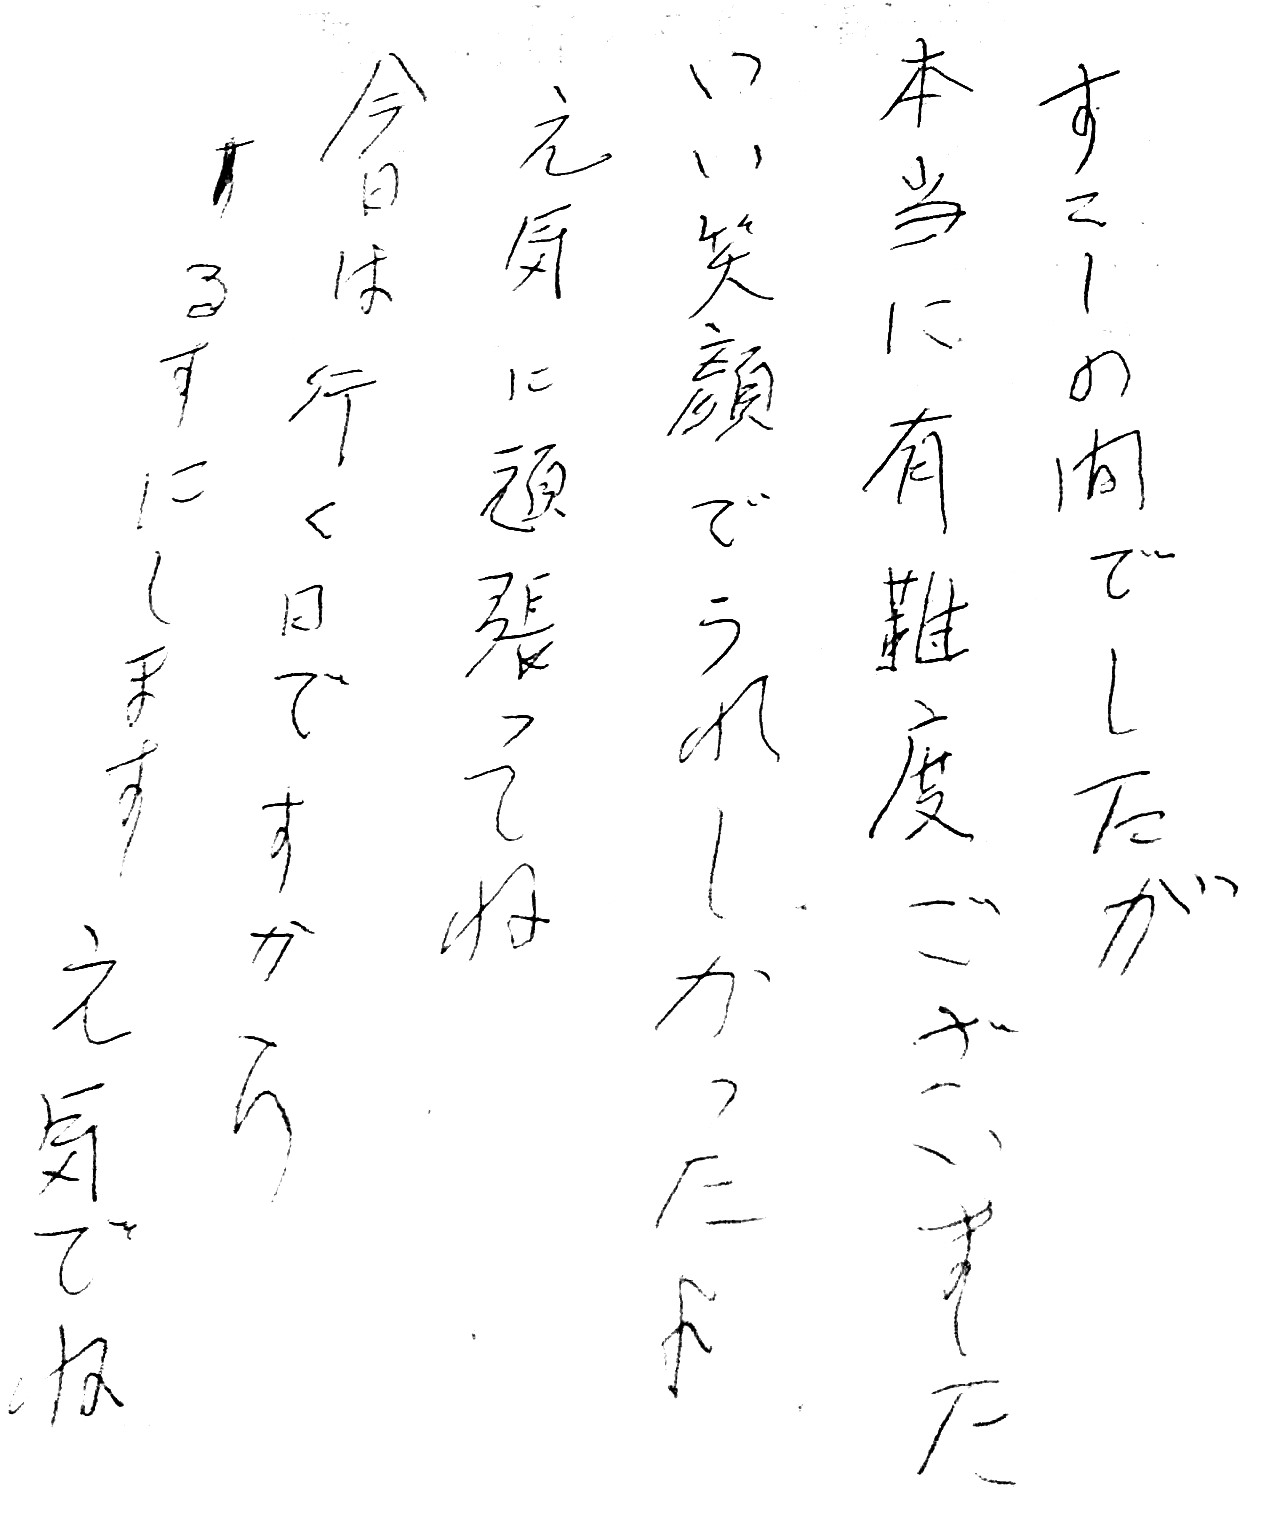 すこしの間でしたが
本当に有難度ございました
いい笑顔でうれしかったよ
元気に頑張ってね
今日は行く日ですから
するすにします 元気でね